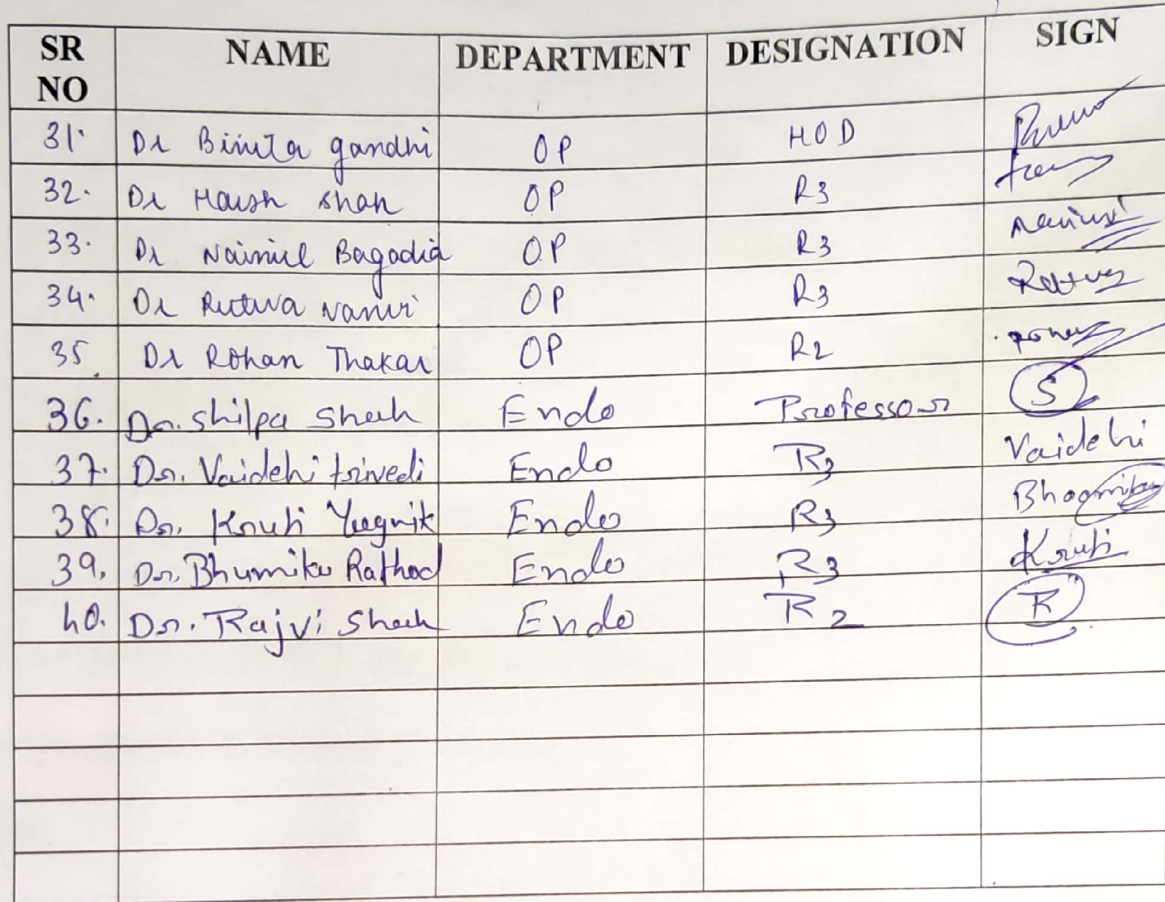 SR NO NAME DEPARTMENT DESIGNATION SIGN
31. Dr Binita gandhi OP HOD
32. Dr Harsh shah OP R3
33. Dr Naimil Bagadia OP R3
34. Dr Rutva OP R3
35. Dr Rohan Thakar OP R2
36. Dr. Shilpa Shah Endo Professor S
37. Dr. Vaidehi trivedi Endo R3 Vaidehi
38. Dr. Kruti Yagnik Endo R3 Bhoomika
39. Dr. Bhumika Rathod Endo R3 Kruti
40. Dr. Rajvi Shah Endo R2 R